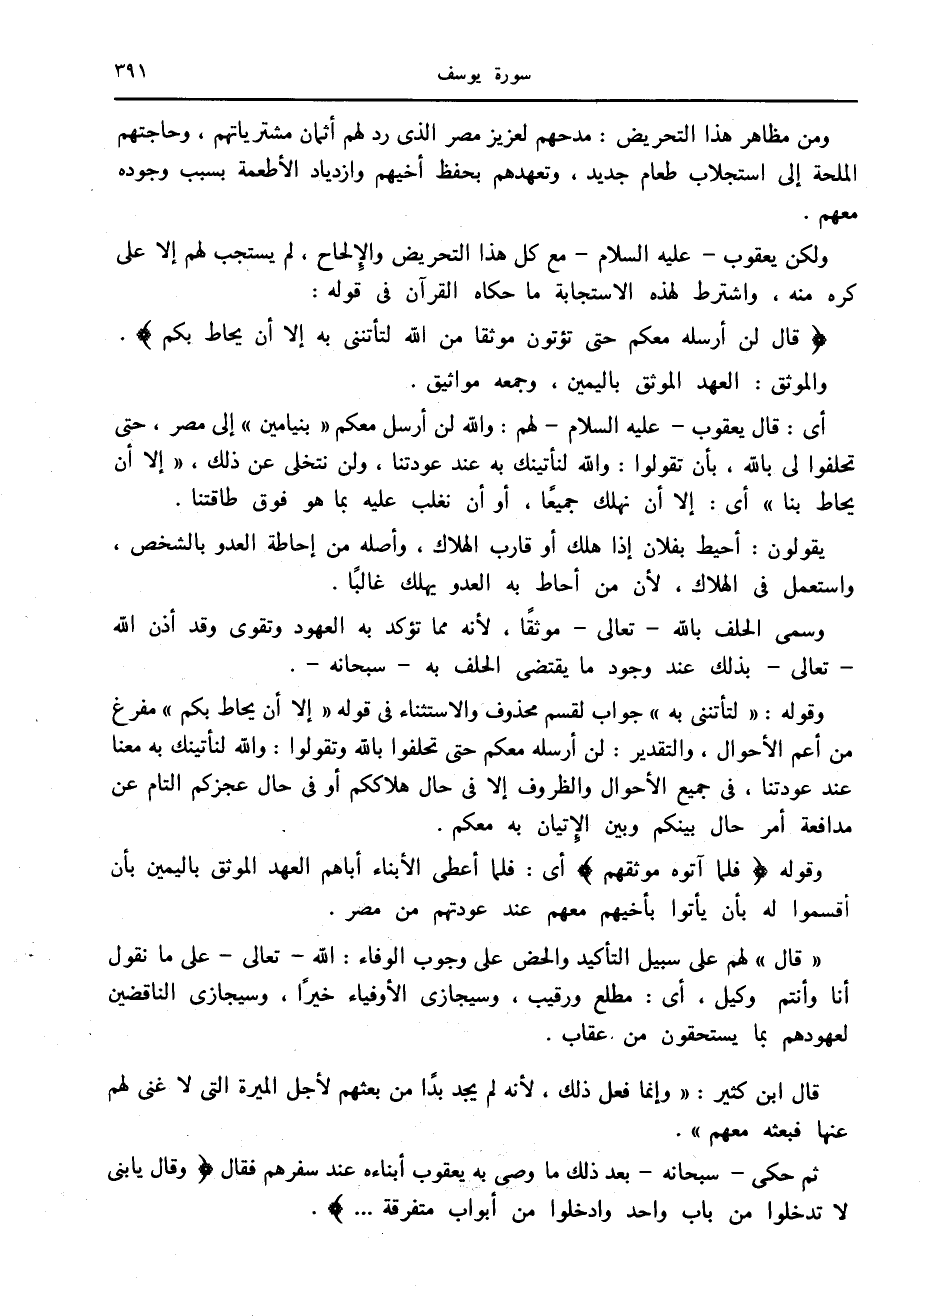 سورة يوسف ٣٩١
ومن مظاهر هذا التحريض : مدحهم لعزيز مصر الذى رد لهم أثمان مشترياتهم ، وحاجتهم
الملحة إلى استجلاب طعام جديد ، وتعهدهم بحفظ أخيهم وازدياد الأطعمة بسبب وجوده
معهم .
ولكن يعقوب - عليه السلام - مع كل هذا التحريض والإلحاح ، لم يستجب لهم إلا على
كره منه ، واشترط لهذه الاستجابة ما حكاه القرآن فى قوله :
﴿ قال لن أرسله معكم حتى تؤتون موثقا من الله لتأتننى به إلا أن يحاط بكم ﴾ .
والموثق : العهد الموثق باليمين ، وجمعه مواثيق .
أى : قال يعقوب - عليه السلام - لهم : والله لن أرسل معكم « بنيامين » إلى مصر ، حتى
تحلفوا لى بالله ، بأن تقولوا : والله لنأتينك به عند عودتنا ، ولن نتخلى عن ذلك ، « إلا أن
يحاط بنا » أى : إلا أن نهلك جميعًا ، أو أن نغلب عليه بما هو فوق طاقتنا .
يقولون : أحيط بفلان إذا هلك أو قارب الهلاك ، وأصله من إحاطة العدو بالشخص ،
واستعمل فى الهلاك ، لأن من أحاط به العدو يهلك غالبًا .
وسمى الحلف بالله - تعالى - موثقًا ، لأنه مما تؤكد به العهود وتقوى وقد أذن الله
- تعالى - بذلك عند وجود ما يقتضى الحلف به - سبحانه - .
وقوله : « لتأتننى به » جواب لقسم محذوف والاستثناء فى قوله « إلا أن يحاط بكم » مفرغ
من أعم الأحوال ، والتقدير : لن أرسله معكم حتى تحلفوا بالله وتقولوا : والله لنأتينك به معنا
عند عودتنا ، فى جميع الأحوال والظروف إلا فى حال هلاككم أو فى حال عجزكم التام عن
مدافعة أمر حال بينكم وبين الإتيان به معكم .
وقوله ﴿ فلما آتوه موثقهم ﴾ أى : فلما أعطى الأبناء أباهم العهد الموثق باليمين بأن
أقسموا له بأن يأتوا بأخيهم معهم عند عودتهم من مصر .
« قال » لهم على سبيل التأكيد والحض على وجوب الوفاء : الله - تعالى - على ما نقول
أنا وأنتم وكيل ، أى : مطلع ورقيب ، وسيجازى الأوفياء خيرًا ، وسيجازى الناقضين
لعهودهم بما يستحقون من عقاب .
قال ابن كثير : « وإنما فعل ذلك ، لأنه لم يجد بدًا من بعثهم لأجل الميرة التى لا غنى لهم
عنها فبعثه معهم » .
ثم حكى - سبحانه - بعد ذلك ما وصى به يعقوب أبناءه عند سفرهم فقال ﴿ وقال يابنى
لا تدخلوا من باب واحد وادخلوا من أبواب متفرقة ... ﴾ .